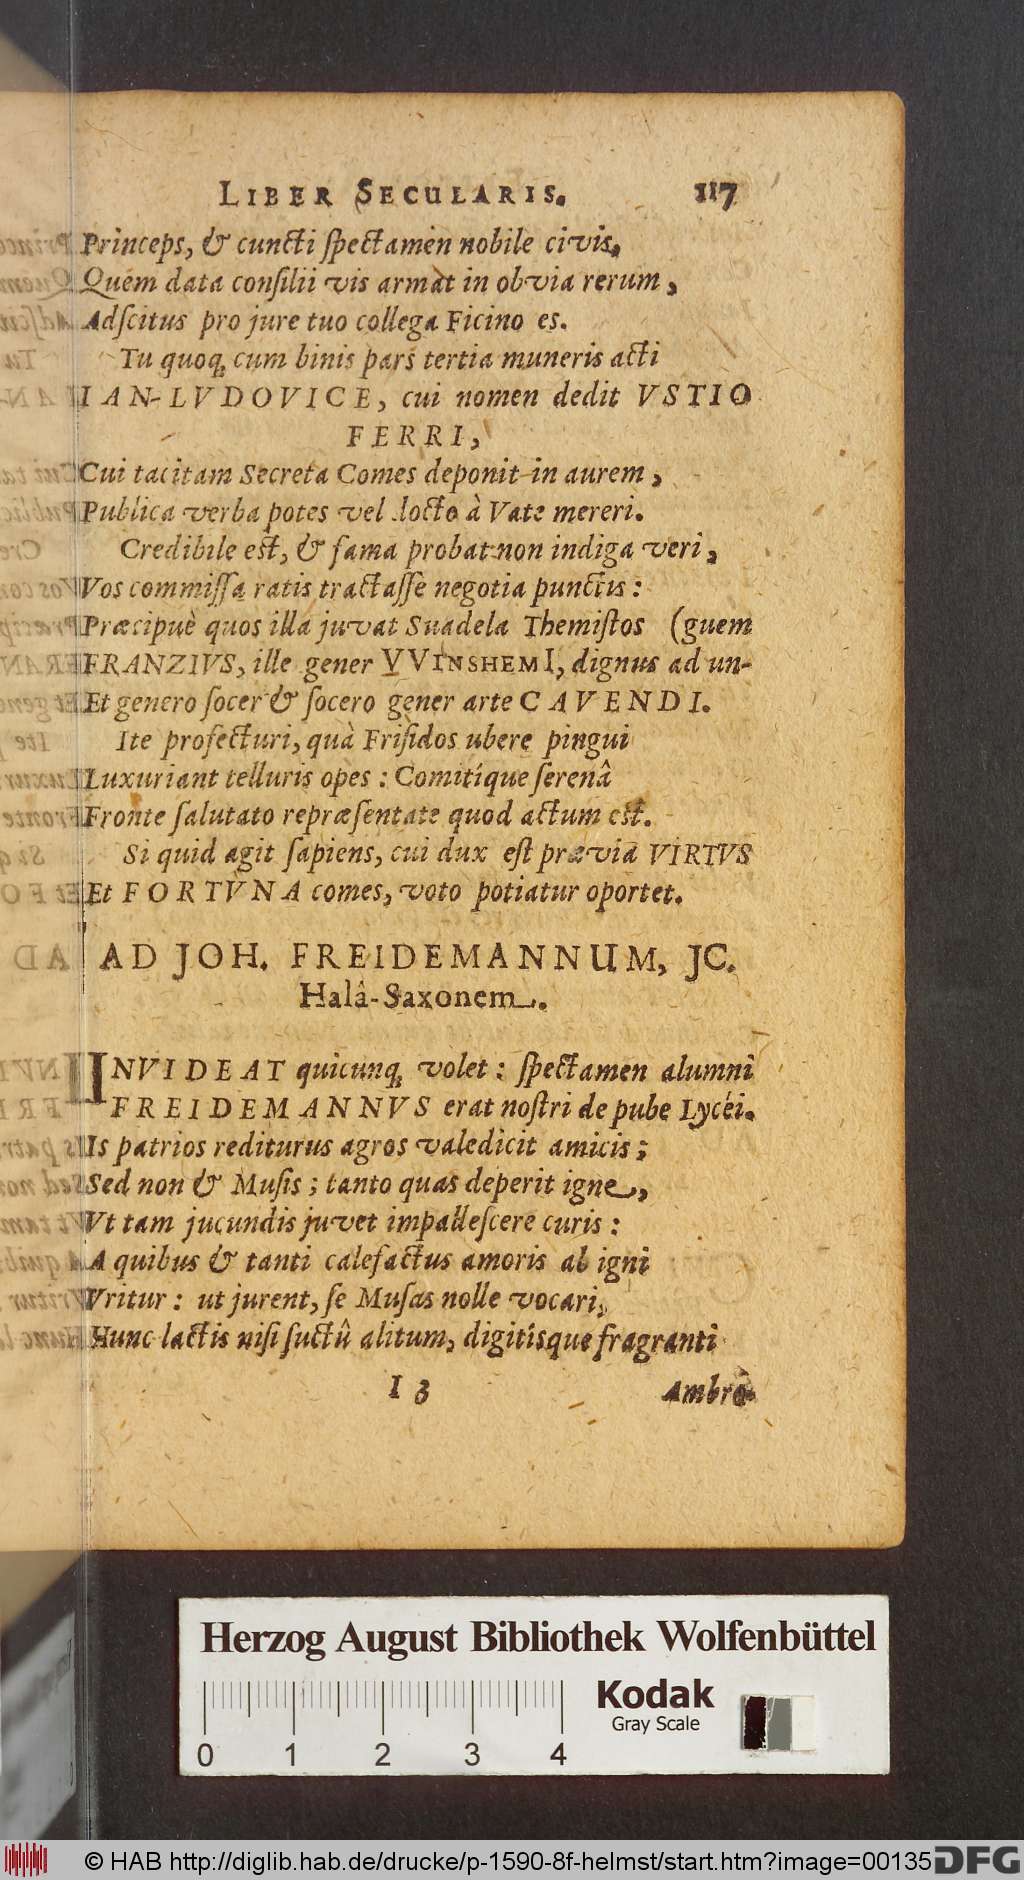 LIBER SECULARIS. 117
Princeps, & cuncti ſpectamen nobile civis,
Quem data conſilii vis armat in obvia rerum,
Adſcitus pro jure tuo collega Ficino es.
Tu quoq; cum binis pars tertia muneris acti
IAN-LVDOVICE, cui nomen dedit VSTIO
FERRI,
Cui tacitam Secreta Comes deponit in aurem,
Publica verba potes vel docto à Vate mereri.
Credibile est, & fama probat non indiga veri,
Vos commiſſa ratis tractaſſe negotia punctis:
Præcipuè quos illa juvat Suadela Themiſtos (guem
FRANZIVS, ille gener VVINSHEMI, dignus ad un-
Et genero ſocer & ſocero gener arte CAVENDI.
Ite profecturi, quà Friſidos ubere pingui
Luxuriant telluris opes: Comitíque ſerenâ
Fronte ſalutato repræſentate quod actum est.
Si quid agit ſapiens, cui dux eſt prævia VIRTVS
Et FORTVNA comes, voto potiatur oportet.
AD JOH. FREIDEMANNUM, JC.
Halâ-Saxonem.
INVIDEAT quicunq; volet: ſpectamen alumni
FREIDEMANNVS erat noſtri de pube Lycéi.
Is patrios rediturus agros valedicit amicis;
Sed non & Muſis; tanto quas deperit igne,
Vt tam jucundis juvet impalleſcere curis:
A quibus & tanti calefactus amoris ab igni
Vritur: ut jurent, ſe Muſas nolle vocari,
Hunc lactis niſi ſuctû alitum, digitîsque fragranti
I 3 Ambrô-
Herzog August Bibliothek Wolfenbüttel
Kodak
Gray Scale
0 1 2 3 4
© HAB http://diglib.hab.de/drucke/p-1590-8f-helmst/start.htm?image=00135 DFG